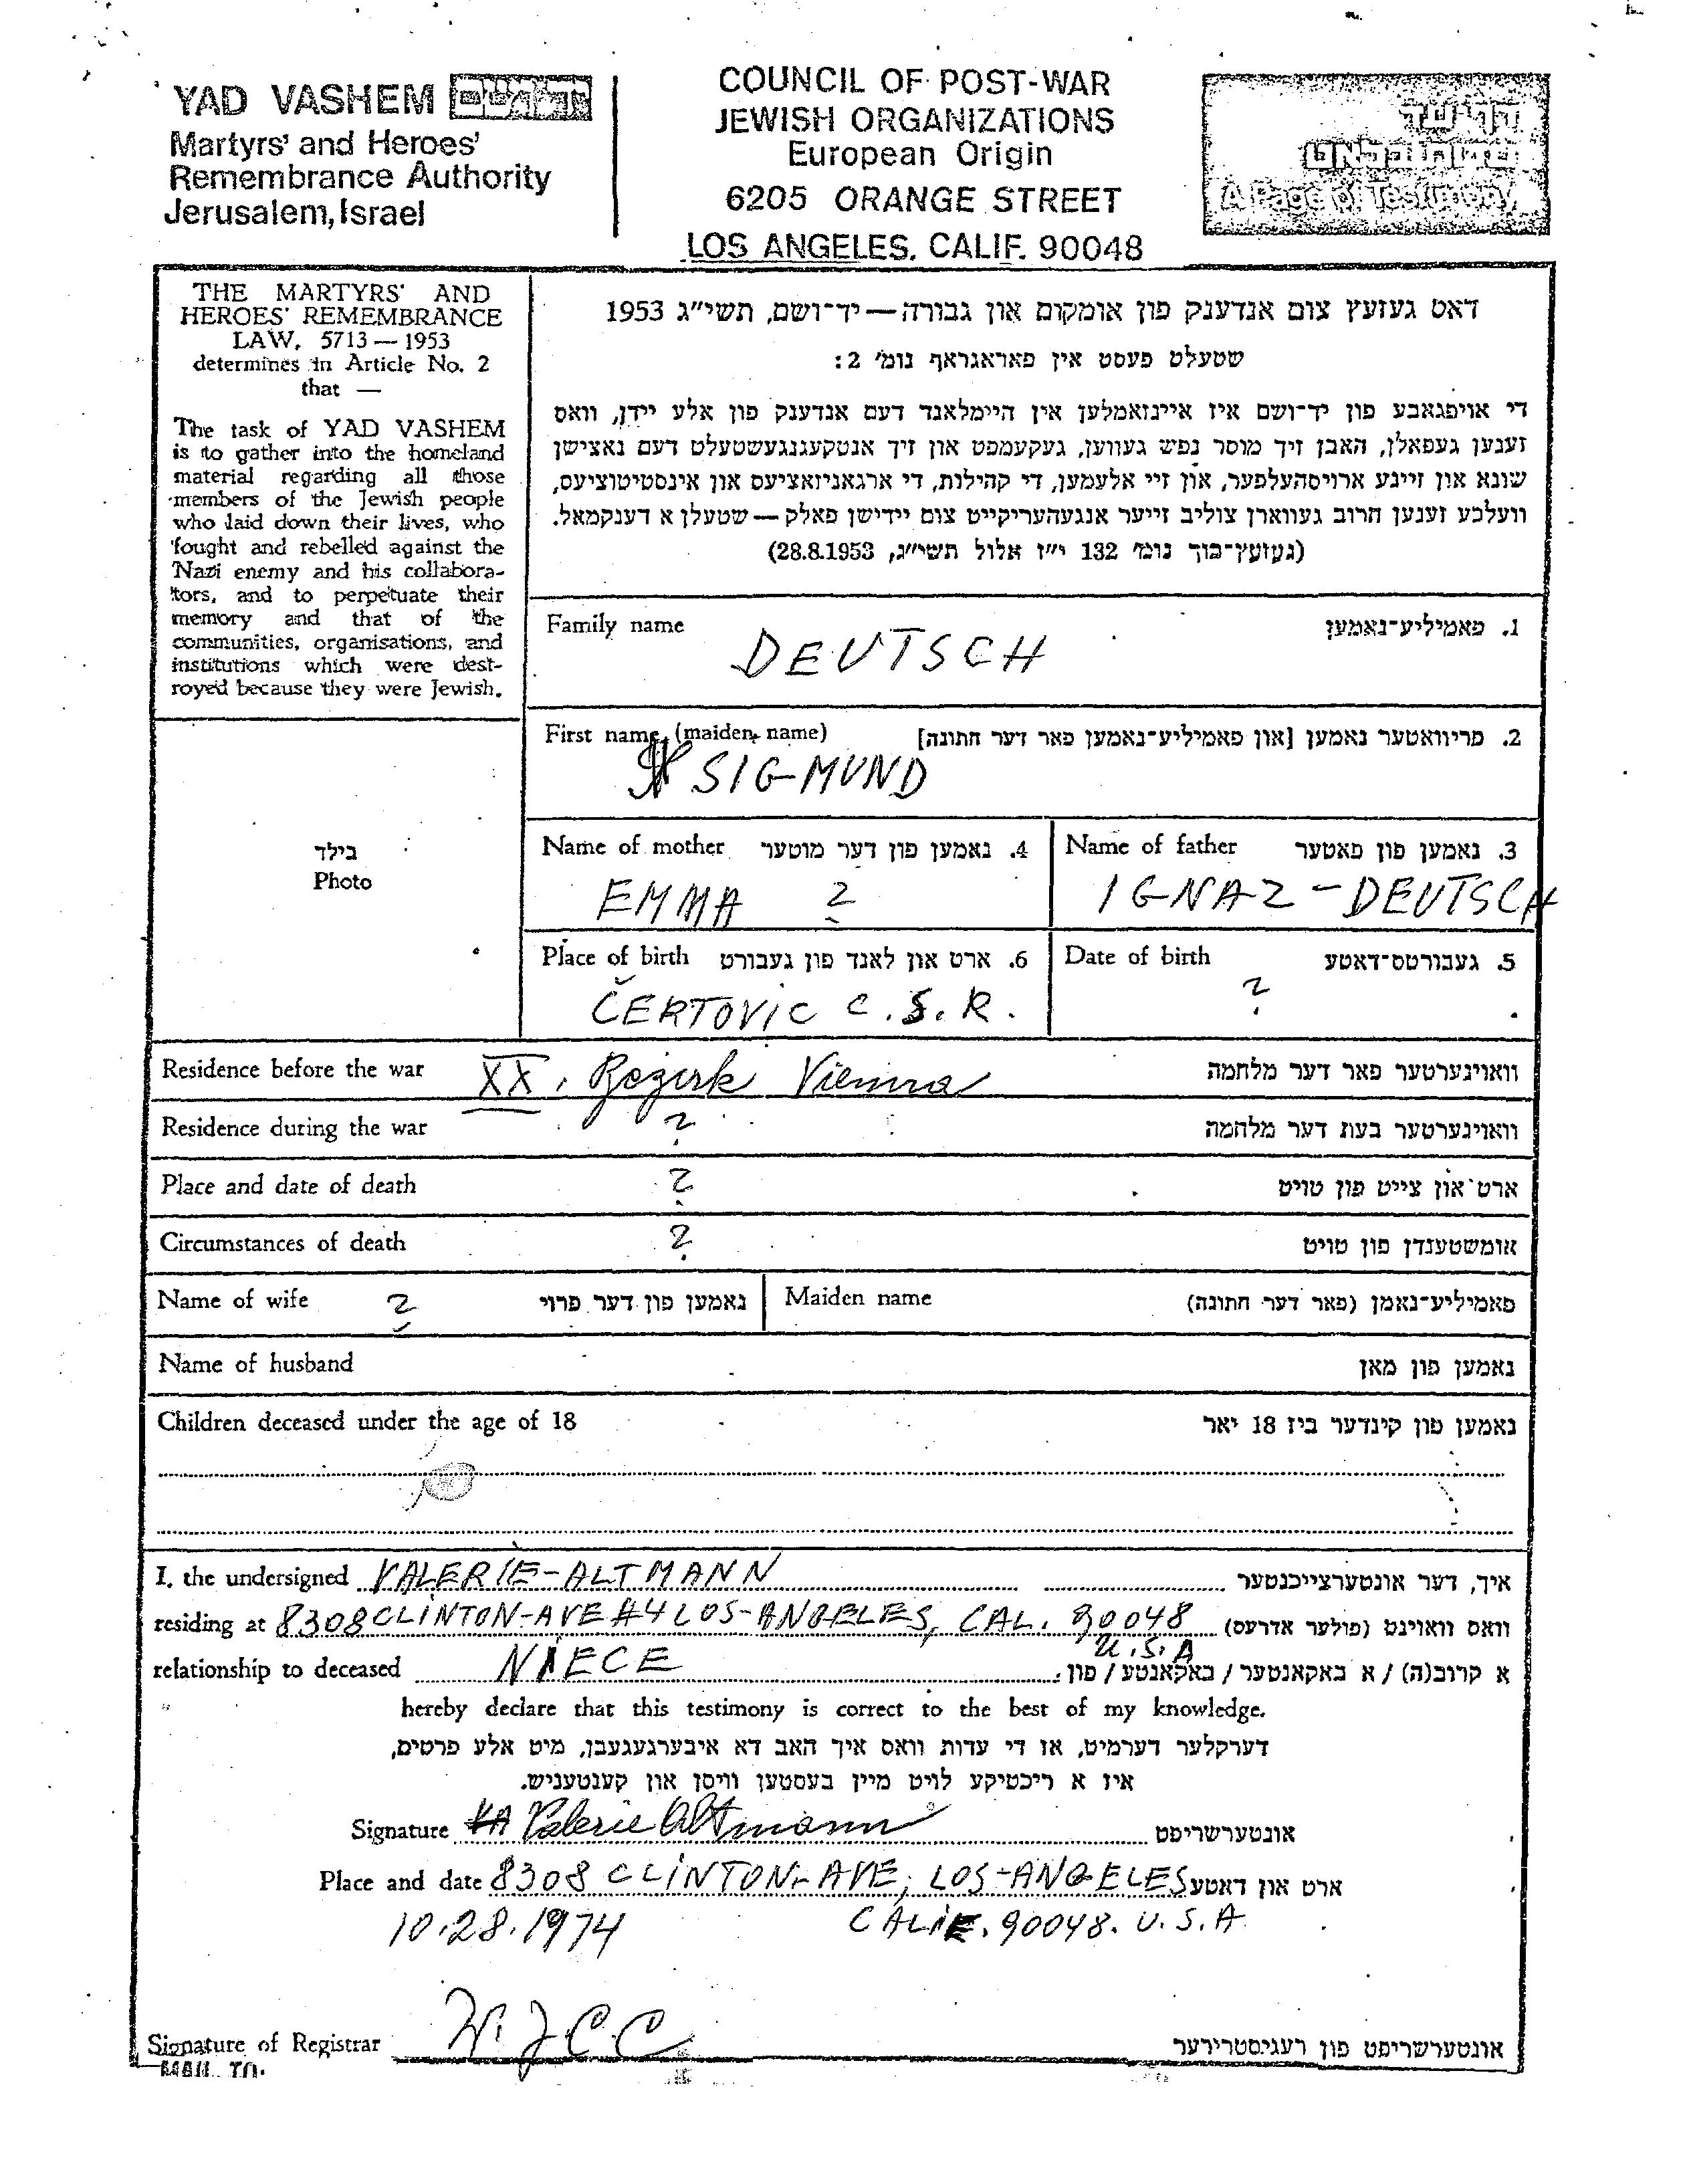 YAD VASHEM יד ושם
Martyrs' and Heroes'
Remembrance Authority
Jerusalem, Israel
COUNCIL OF POST-WAR
JEWISH ORGANIZATIONS
European Origin
6205 ORANGE STREET
LOS ANGELES, CALIF. 90048
A Page of Testimony
THE MARTYRS' AND
HEROES' REMEMBRANCE
LAW, 5713 — 1953
determines in Article No. 2
that —
The task of YAD VASHEM
is to gather into the homeland
material regarding all those
members of the Jewish people
who laid down their lives, who
fought and rebelled against the
Nazi enemy and his collabora-
tors, and to perpetuate their
memory and that of the
communities, organisations, and
institutions which were dest-
royed because they were Jewish.
דאט געזעץ צום אנדענק פון אומקום און גבורה — יד־ושם, תשי"ג 1953
שטעלט פעסט אין פאראגראף נומ' 2:
די אויפגאבע פון יד־ושם איז איינזאמלען אין היימלאנד דעם אנדענק פון אלע יידן, וואס
זענען געפאלן, האבן זיך מוסר נפש געווען, געקעמפט און זיך אנטקעגנגעשטעלט דעם נאצישן
שונא און זיינע ארויסהעלפער, און זיי אלעמען, די קהילות, די ארגאניזאציעס און אינסטיטוציעס,
וועלכע זענען חרוב געווארן צוליב זייער אנגעהעריקייט צום יידישן פאלק — שטעלן א דענקמאל.
(געזעץ־בוך נומ' 132 י"ז אלול תשי"ג, 28.8.1953)
Family name 1. פאמיליע־נאמען
DEUTSCH
First name (maiden name) 2. פריוואטער נאמען [און פאמיליע־נאמען פאר דער חתונה]
SIGMUND
בילד
Photo
Name of mother 4. נאמען פון דער מוטער
EMMA ?
Name of father 3. נאמען פון פאטער
IGNAZ - DEUTSCH
Place of birth 6. ארט און לאנד פון געבורט
ČERTOVIC C.S.R.
Date of birth 5. געבורטס־דאטע
?
Residence before the war XX. Bezirk Vienna וואוינערטער פאר דער מלחמה
Residence during the war ? וואוינערטער בעת דער מלחמה
Place and date of death ? ארט און צייט פון טויט
Circumstances of death ? אומשטענדן פון טויט
Name of wife ? נאמען פון דער פרוי
Maiden name פאמיליע־נאמן (פאר דער חתונה)
Name of husband נאמען פון מאן
Children deceased under the age of 18 נאמען פון קינדער ביז 18 יאר
I, the undersigned VALERIE-ALTMANN איך, דער אונטערצייכנטער
residing at 8308 CLINTON-AVE #4 LOS-ANGELES, CAL. 90048 וואס וואוינט (פולער אדרעס)
U.S.A
relationship to deceased NIECE א קרוב(ה) / א באקאנטער / באקאנטע / פון:
hereby declare that this testimony is correct to the best of my knowledge.
דערקלער דערמיט, אז די עדות וואס איך האב דא איבערגעגעבן, מיט אלע פרטים,
איז א ריכטיקע לויט מיין בעסטען וויסן און קענטעניש.
Signature Valerie Altmann אונטערשריפט
Place and date 8308 CLINTON-AVE, LOS-ANGELES ארט און דאטע
10.28.1974 CALIF. 90048. U.S.A
Signature of Registrar W.J.C.C אונטערשריפט פון רעגיסטרירער
MAIL TO: